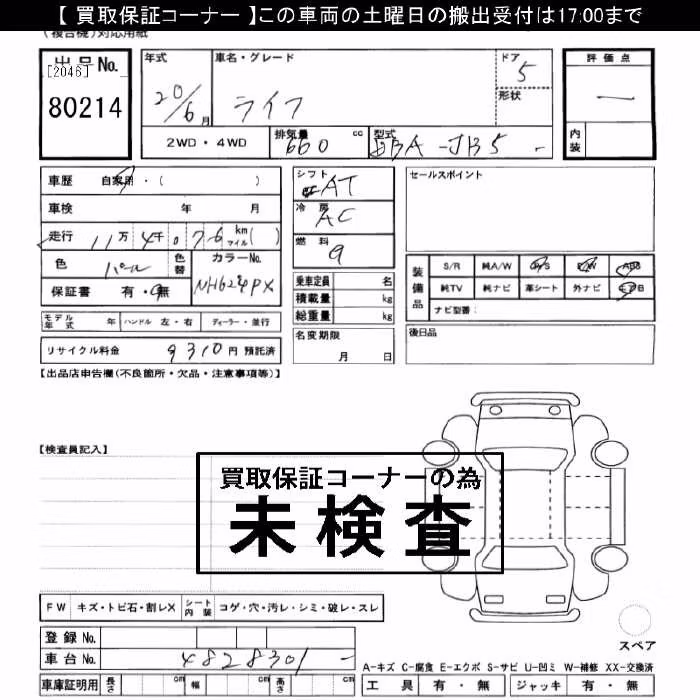 【 買取保証コーナー 】この車両の土曜日の搬出受付は17:00まで
(複合機)対応用紙
出品No.
[2046]
80214
年式
20/6月
車名・グレード
ライフ
ドア
5
形状
評価点
一
内装
2WD・4WD
排気量
660 cc
型式
DBA-JB5
車歴 自家用・( )
車検 年 月
走行 11万 4千 0 7 6 km マイル( )
色 パール 色替
カラーNo.
NH624PX
保証書 有・無
シフト
AT
冷房
AC
燃料
9
乗車定員 名
積載量 kg
総重量 kg
名変期限
月 日
セールスポイント
装備品
S/R 純A/W P/S P/W ABS
純TV 純ナビ 革シート 外ナビ エアB
ナビ型番:
後日品
モデル年式 年 ハンドル 左・右 ディーラー・並行
リサイクル料金 9310 円 預託済
【出品店申告欄(不良箇所・欠品・注意事項等)】
【検査員記入】
買取保証コーナーの為
未検査
FW キズ・トビ石・割レX シート内装 コゲ・穴・汚レ・シミ・破レ・スレ
登録No.
車台No. 4828301
車庫証明用 長さ cm 幅 cm 高さ cm
スペア
A-キズ C-腐食 E-エクボ S-サビ U-凹ミ W-補修 XX-交換済
工具 有・無 ジャッキ 有・無